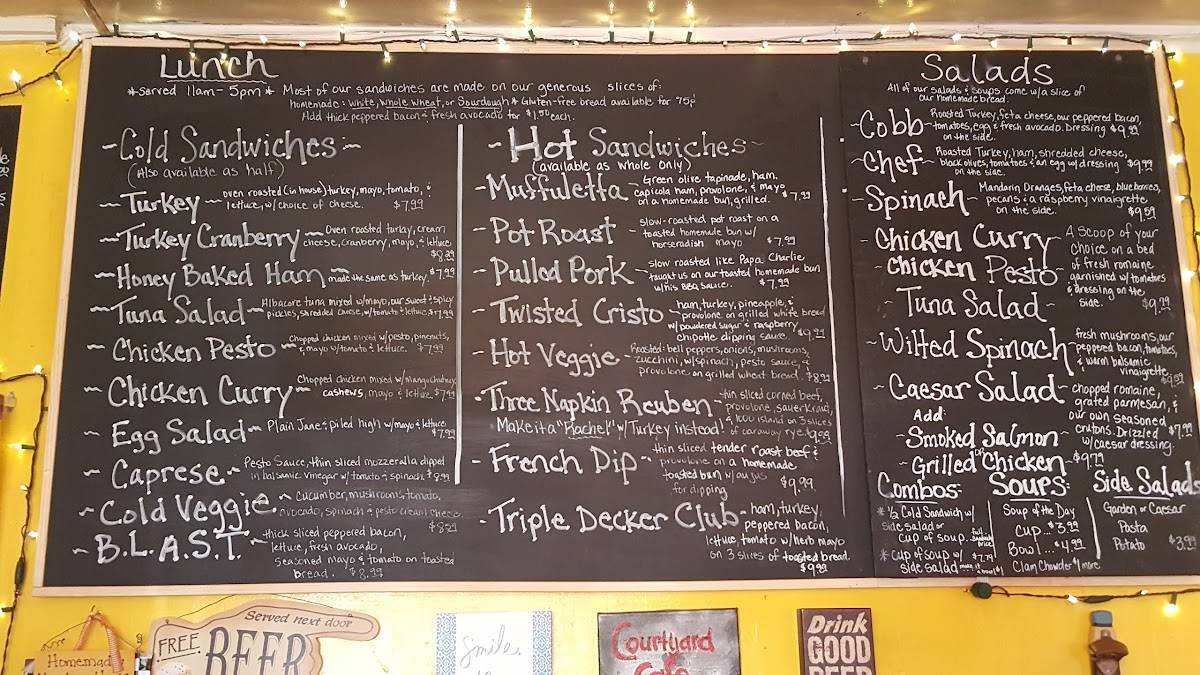 Lunch
*Served 11am-5pm* Most of our sandwiches are made on our generous slices of:
homemade: white, whole wheat, or sourdough * Gluten-free bread available for 75¢
Add thick peppered bacon & fresh avocado for $1.50 each.
~Cold Sandwiches~
(Also available as half)
~Turkey~ oven roasted (in house) turkey, mayo, tomato, &
lettuce, w/ choice of cheese. $7.99
~Turkey Cranberry~ Oven roasted turkey, cream
cheese, cranberry, mayo, & lettuce
$8.99
~Honey Baked Ham~ made the same as turkey. $7.99
~Tuna Salad~ Albacore tuna mixed w/ mayo, our sweet & spicy
pickles, shredded cheese, w/ tomato & lettuce $7.99
~Chicken Pesto~ Chopped chicken mixed w/ pesto, pinenuts,
& mayo w/ tomato & lettuce. $7.99
~Chicken Curry~ Chopped chicken mixed w/ mango chutney,
cashews, mayo & lettuce. $7.99
~Egg Salad~ Plain Jane & piled high w/ mayo & lettuce
$7.99
~Caprese~ Pesto Sauce, thin sliced mozzeralla dipped
in balsamic vinegar w/ tomato & spinach
~Cold Veggie~ cucumber, mushrooms, tomato,
avocado, spinach & pesto cream cheese
$8.99
~B.L.A.S.T.~ thick sliced peppered bacon,
lettuce, fresh avocado,
seasoned mayo & tomato on toasted
bread. $8.99
~Hot Sandwiches~
(available as whole only)
~Muffuletta~ Green olive tapinade, ham,
capicola ham, provolone, & mayo
on a homemade bun, grilled. $7.99
~Pot Roast slow-roasted pot roast on a
toasted homemade bun w/
horseradish mayo $7.99
~Pulled Pork~ slow roasted like Papa Charlie
taught us on our toasted homemade bun
w/ his BBQ sauce. $7.99
~Twisted Cristo~ ham, turkey, pineapple, &
provolone on grilled white bread
w/ powdered sugar & raspberry
chipotle dipping sauce. $9.99
~Hot Veggie~ Roasted: bell peppers, onions, mushrooms,
zucchini, w/ spinach, pesto sauce, &
provolone on grilled wheat bread. $8.99
~Three Napkin Reuben~ thin sliced corned beef,
provolone, sauerkraut,
& 1000 island on 3 slices
Make it a "Rachel" w/ Turkey instead! of caraway rye. $9.99
~French Dip~ thin sliced tender roast beef &
provolone on a homemade
toasted bun w/ au jus
for dipping $9.99
~Triple Decker Club~ ham, turkey,
peppered bacon,
lettuce, tomato w/ herb mayo
on 3 slices of toasted bread.
$9.99
Salads
All of our salads & soups come w/ a slice of
our homemade bread.
~Cobb~ Roasted Turkey, feta cheese, our peppered bacon,
tomatoes, egg & fresh avocado. Dressing
on the side. $9.99
~Chef~ Roasted Turkey, ham, shredded cheese,
black olives, tomatoes & an egg w/ dressing
on the side. $9.99
~Spinach~ Mandarin Oranges, feta cheese, blueberries,
pecans & a raspberry vinaigrette
on the side. $9.59
~Chicken Curry~ A scoop of your
choice on a bed
~Chicken Pesto~ of fresh romaine
garnished w/ tomatoes
~Tuna Salad~ & dressing on the
side. $9.99
~Wilted Spinach~ fresh mushrooms, our
peppered bacon, tomatoes,
& warm balsamic
vinaigrette
$9.99
~Caesar Salad~ chopped romaine,
grated parmesan, &
our own seasoned
crutons. Drizzled
w/ caesar dressing. $7.99
Add:
~Smoked Salmon
or
~Grilled Chicken~ $9.99
Combos:
*½ Cold Sandwich w/
side salad or
cup of soup. full sandwich price
*Cup of soup w/ $7.79
side salad
Soups:
Soup of the Day
Cup... $3.99
Bowl... $4.99
Clam Chowder $1 more
Side Salads
Garden or Caesar
Pasta
Potato $3.99
Served next door
FREE
BEER
Homemade
Smile
Courtyard
Cafe
Drink
GOOD
BEER